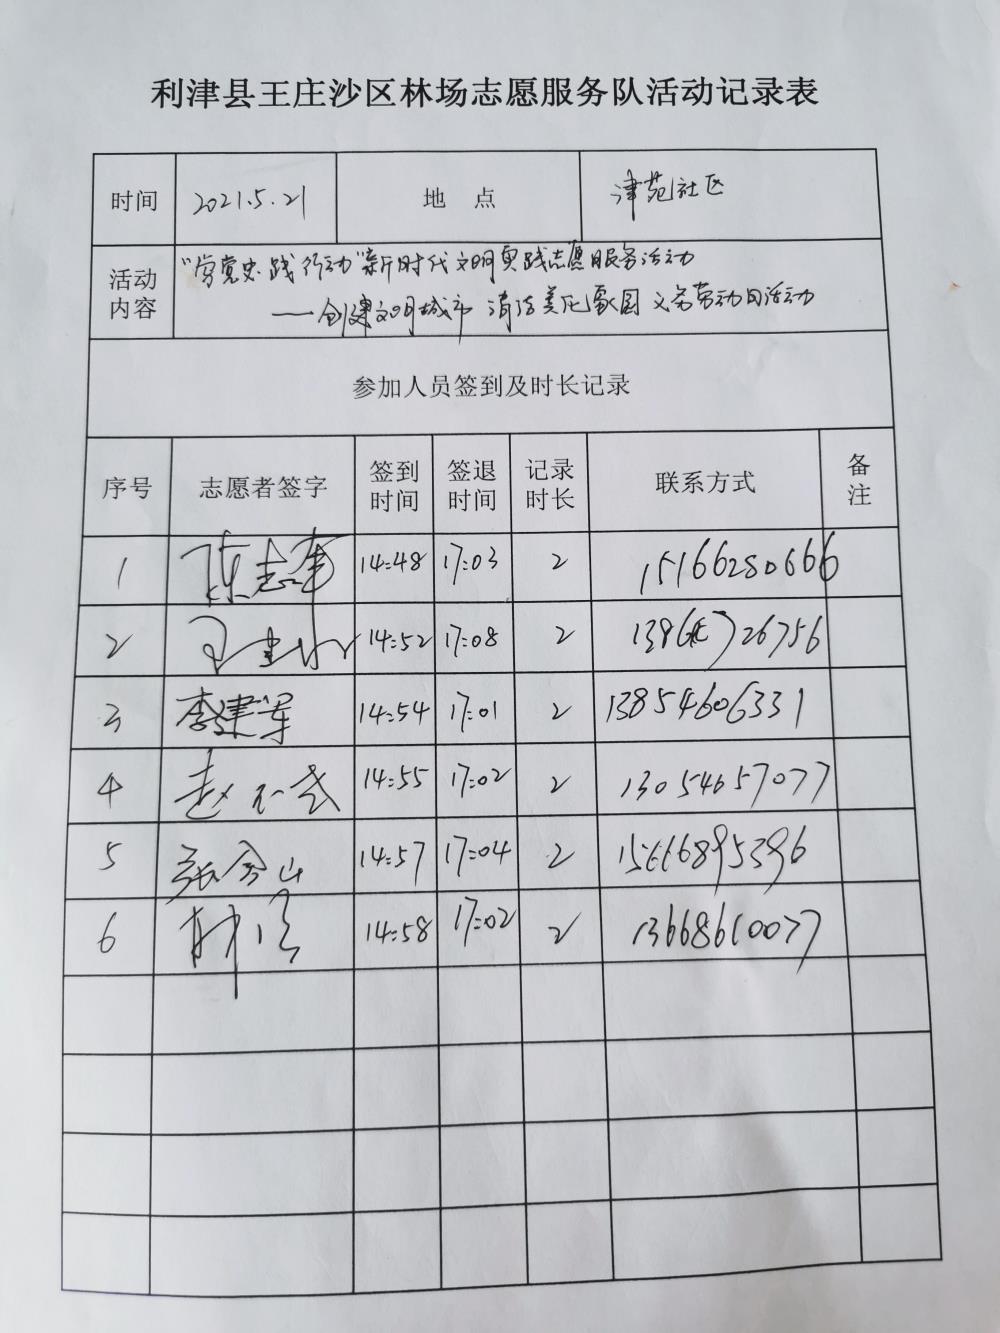 利津县王庄沙区林场志愿服务队活动记录表
时间 2021.5.21 地 点 津苑社区
活动内容 “学党史 践行动”新时代文明实践志愿服务活动
——创建文明城市 清洁美化家园 义务劳动日活动
参加人员签到及时长记录
序号 志愿者签字 签到时间 签退时间 记录时长 联系方式 备注
1 陈志军 14:48 17:03 2 15166280666
2 14:52 17:08 2
3 李建军 14:54 17:01 2 13854606331
4 14:55 17:02 2 13054657077
5 张金山 14:57 17:04 2 15666895396
6 14:58 17:02 2 13668610077